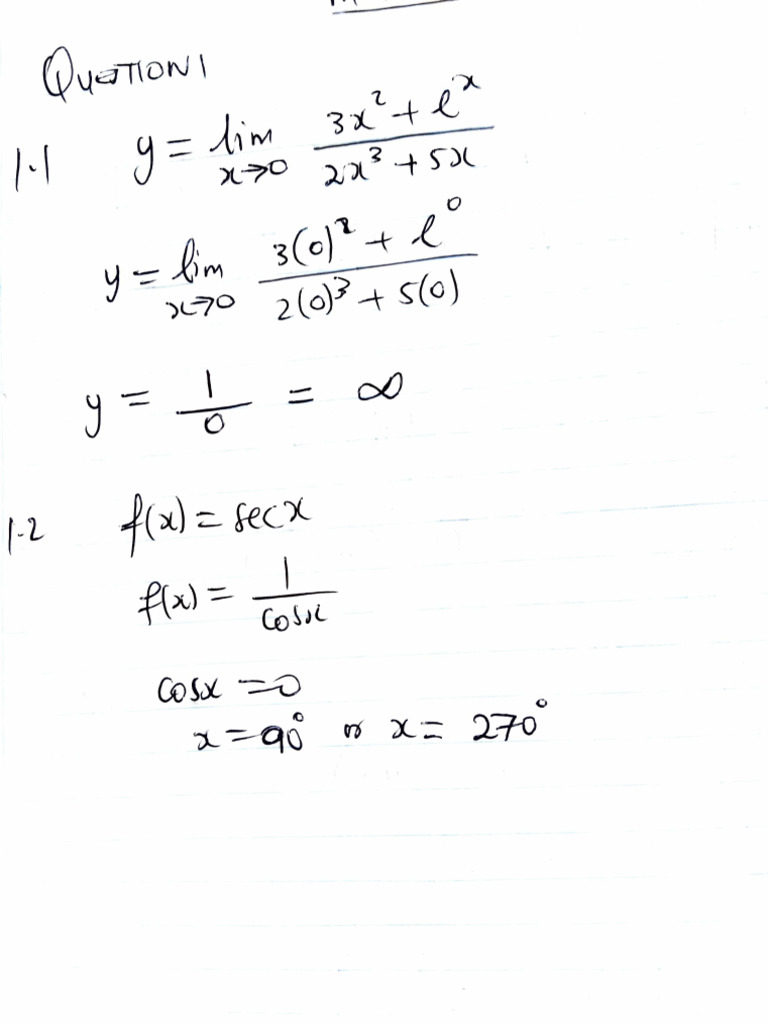 QUESTION 1
1.1 y = lim x→0 (3x² + e^x) / (2x³ + 5x)
y = lim x→0 (3(0)² + e^0) / (2(0)³ + 5(0))
y = 1/0 = ∞
1.2 f(x) = sec x
f(x) = 1 / cos x
cos x = 0
x = 90° or x = 270°